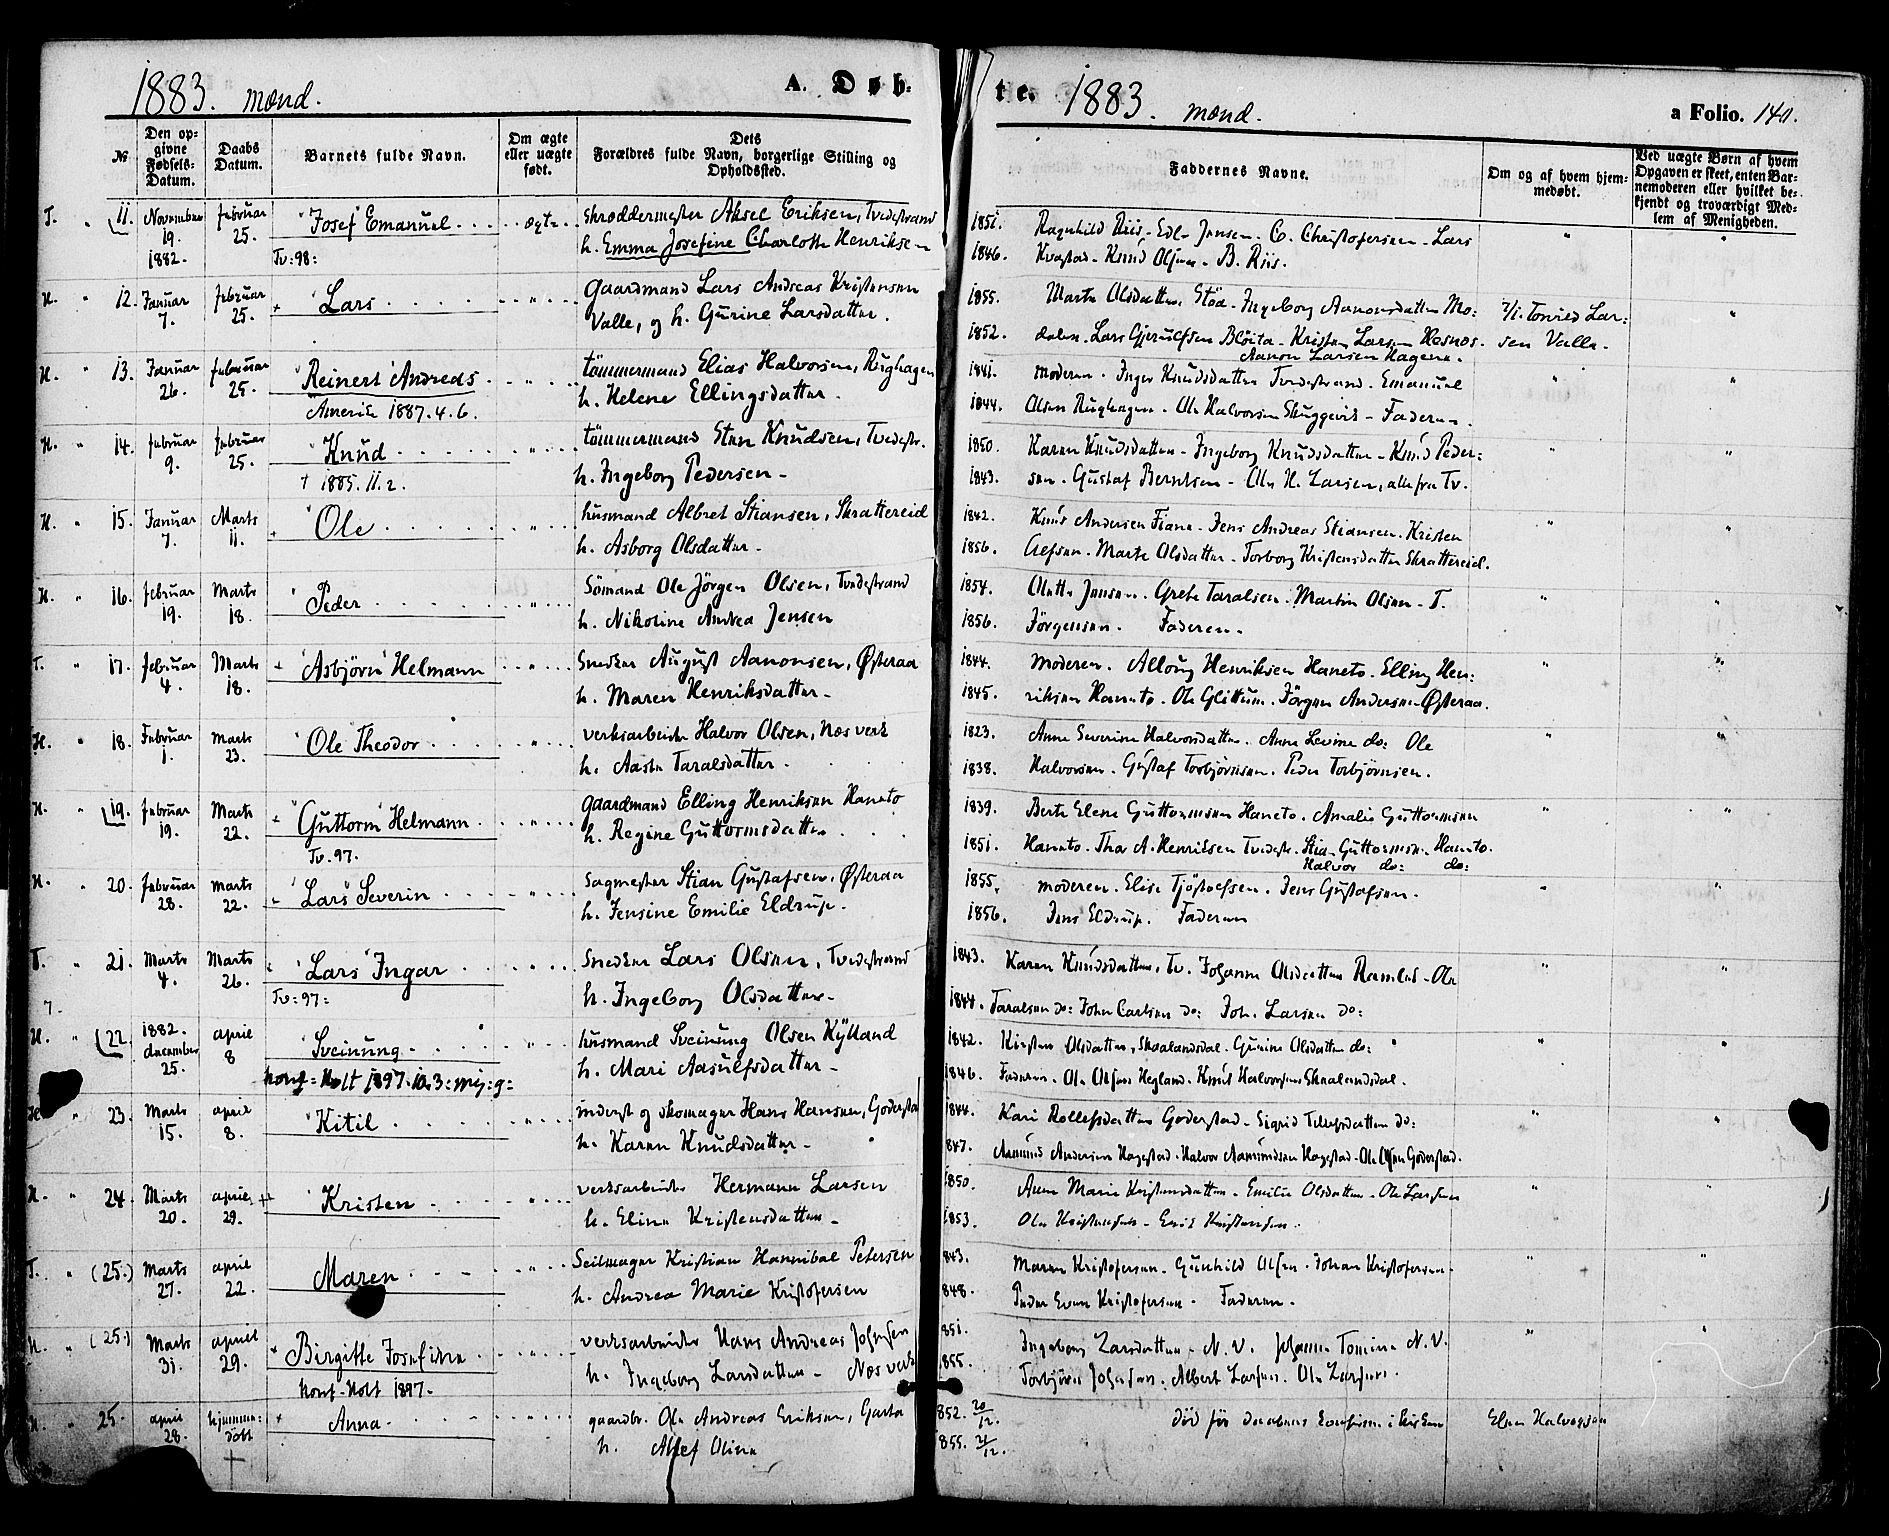 1883. mænd.
A. Døb-
№
Den op-
givne
Fødsels-
Datum.
Daabs
Datum.
Barnets fulde Navn.
Om ægte
eller uægte
født.
Dets
Forældres fulde Navn, borgerlige Stilling og
Opholdssted.
T. " 11. November 19. 1882. februar 25. Josef Emanuel ... ægte .. skræddermester Aksel Eriksen, Tvedestrand
Tv: 98: h. Emma Josefine Charlotte Henriksen
H. " 12. Januar 7. februar 25. + Lars .... " ... gaardmand Lars Andreas Kristensen
Valle, og h. Gurine Larsdatter.
H. " 13. Januar 26. februar 25. Reinert Andreas . " ... tömmermand Elias Halvorsen, Rughagen
Amerik 1887.4.6. h. Helene Ellingsdatter.
H. " 14. februar 9. februar 25. Knud ..... " ... tömmermand Sten Knudsen, Tvedestr.
† 1885.11.2. h. Ingeborg Pedersen -
H. " 15. Januar 7. Marts 11. + Ole ..... " ... husmand Albret Stiansen, Skrattereid
h. Asborg Olsdatter -
H. " 16. februar 19. Marts 18. Peder ..... " ... Sömand Ole Jörgen Olsen, Tvedestrand
h. Nikoline Andrea Jensen
T. " 17. februar 4. Marts 18. + Asbjörn Helmann .. " ... Snedker August Aanonsen, Østeraa
h. Maren Henriksdatter -
H. " 18. Februar 1. Marts 23. Ole Theodor .... " ... verksarbeider Halvor Olsen, Næs verk
h. Aaste Taralsdatter.
H. " 19. februar 19. Marts 22. + Guttorm Helmann . " ... gaardmand Elling Henriksen Haneto
Tv. 97. h. Regine Guttormsdatter
H. " 20. februar 28. marts 22. Lars Severin ... " ... Sagmester Stian Gustafsen, Østeraa
h. Jensine Emilie Eldrup -
T. " 21. Marts 4. Marts 26. Lars Ingar ... " ... Snedker Lars Olsen, Tvedestrand
Tv: 97: h. Ingeborg Olsdatter -
7.
H. " 22. 1882. december 25. april 8 Sveinung .... " .. husmand Sveinung Olsen Kylland
konf = Holt 1897.10.3: h. Mari Aasulfsdatter -
H. " 23. Marts 15. april 8. Kitil .... " ... inderst og skomager Hans Hansen, Goderstad
h. Karen Knudsdatter -
H. " 24. Marts 20. april 29. Kristen ... " ... verksarbeider Hermann Larsen
h. Eline Kristensdatter -
T. " (25.) Marts 27. april 22. Maren .... " ... Seilmager Kristian Hannibal Petersen
h. Andrea Marie Kristofersen
H. " (25.) Marts 31. april 29. Birgitte Josefine .... verksarbeider Hans Andreas Johnsen
konf - Holt 1897. h. Ingeborg Larsdatter - Næs verk
H. " 25. april 28. hjemme-
döbt † + Anna ... " ... gaardbr. Ole Andreas Eriksen, Garta
h. Olina
te. 1883. mænd. a Folio. 140.
Faddernes Navne.
Om og af hvem hjem-
medøbt.
Ved uægte Børn af hvem
Opgaven er skeet, enten Bar-
nemoderen eller hvilket be-
kjendt og troværdigt Med-
lem af Menigheden.
1851. Ragnhild Riis - Edle Jensen - C. Christofersen - Lars
1846. Kvastad - Knud Olsen - B. Riis.
1855. Marte Olsdatter, Stöa - Ingeborg Aanonsdatter Mo: 7/1. Tarald Lar:
1852. dalen - Lars Gjerulfsen Blöita - Kristen Larsen Resnes. sen Valle.
Aanon Larsen Hagene.
1841. moderen - Inger Knudsdatter Tvedestrand - Emanuel
1844. Olsen Rughagen - Ole Halvorsen Skuggevik - Faderen.
1850. Karen Knudsdatter - Ingeborg Knudsdatter - Knud Peder:
1843. sen - Gustaf Berntsen - Ole H. Larsen, alle fra Tv.
1842. Knud Andersen Fiane - Jens Andreas Stiansen - Kristen
1856. Marte Olsdatter - Torborg Kristensdatter Skrattereid.
1854. Olette Jensen - Grete Taralsen - Martin Olsen - T.
1856. Jörgensen. Faderen.
1844. moderen. Henriksen Haneto. Elling Hen:
1845. riksen Haneto. Ole Glittum. Jörgen Andersen Østeraa.
1823. Anne Severine Halvorsdatter. Anne Levine do: Ole
1838. Halvorsen. Gustaf Torbjörnsen. Peder Torbjörnsen.
1839. Berte Elene Guttormsen Haneto. Amalie Guttormsen
1851. Haneto. Thor A. Henriksen Tvedestr. Stian Guttormsen Haneto.
Halvor do: do:
1855. moderen. Elise Tjöstolfsen. Jens Gustafsen.
1856. Jens Eldrup. Faderen
1843. Karen Knudsdatter, Tv. Johanne Olsdatter Ramleid - Ole
1844. Taralsen do: John Carlsen do: Joh. Larsen do:
1842. Kirsten Olsdatter, Skaalandsdal. Gurine Olsdatter do:
1846. Faderen. Ole Olsen Hegland. Knud Halvorsen Skaalandsdal.
1844. Kari Rollefsdatter Goderstad. Sigrid Tellefsdatter do:
1847. Aamund Andersen Hagestad. Halvor Aamundsen Hagestad. Ole Olsen Goderstad.
1850. Anne Marie Kristensdatter. Emilie Olsdatter. Ole Larsen
1853. Ole Kristensen - Erik Kristensen.
843. Maren Kristofersen. Gunhild Olsen. Johan Kristofersen.
848. Peder Even Kristofersen. Faderen.
851. Ingeborg Larsdatter - N.V. Johanne Tomine N.V.
855. Torbjörn Johnsen. Albert Larsen. Ole Larsen.
852. 20/12. död för daabens i Kirken Elen Halvorsen
855. 21/12.